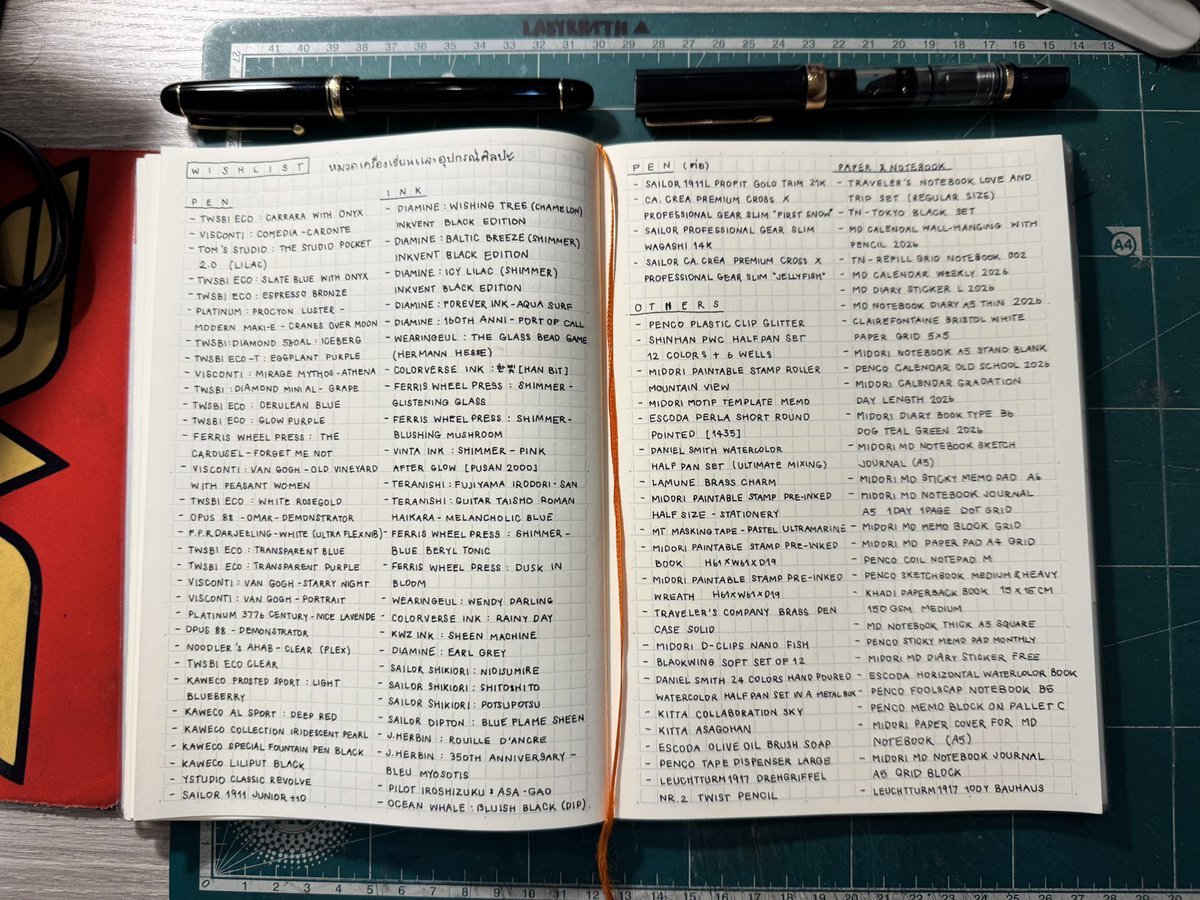 LABYRINTH
WISHLIST หมวดเครื่องเขียนและอุปกรณ์ศิลปะ
PEN
- TWSBI ECO : CARRARA WITH ONYX
- VISCONTI : COMEDIA - CARONTE
- TOM'S STUDIO : THE STUDIO POCKET
2.0 (LILAC)
- TWSBI ECO : SLATE BLUE WITH ONYX
- TWSBI ECO : ESPRESSO BRONZE
- PLATINUM : PROCYON LUSTER -
MODERN MAKI-E - CRANES OVER MOON
- TWSBI : DIAMOND 580AL : ICEBERG
- TWSBI ECO-T : EGGPLANT PURPLE
- VISCONTI : MIRAGE MYTHOS - ATHENA
- TWSBI : DIAMOND MINI AL - GRAPE
- TWSBI ECO : CERULEAN BLUE
- TWSBI ECO : GLOW PURPLE
- FERRIS WHEEL PRESS : THE
CAROUSEL - FORGET ME NOT
- VISCONTI : VAN GOGH - OLD VINEYARD
WITH PEASANT WOMEN
- TWSBI ECO : WHITE ROSEGOLD
- OPUS 88 - OMAR - DEMONSTRATOR
- F.P.R. DARJEELING - WHITE (ULTRA FLEX NIB)
- TWSBI ECO : TRANSPARENT BLUE
- TWSBI ECO : TRANSPARENT PURPLE
- VISCONTI : VAN GOGH - STARRY NIGHT
- VISCONTI : VAN GOGH - PORTRAIT
PLATINUM 3776 CENTURY - NICE LAVENDE
- OPUS 88 - DEMONSTRATOR
- NOODLER'S AHAB - CLEAR (FLEX)
- TWSBI ECO CLEAR
- KAWECO FROSTED SPORT : LIGHT
BLUEBERRY
- KAWECO AL SPORT : DEEP RED
- KAWECO COLLECTION IRIDESCENT PEARL
- KAWECO SPECIAL FOUNTAIN PEN BLACK
- KAWECO LILIPUT BLACK
- YSTUDIO CLASSIC REVOLVE
- SAILOR 1911 JUNIOR +10
INK
- DIAMINE : WISHING TREE (CHAMELON)
INKVENT BLACK EDITION
- DIAMINE : BALTIC BREEZE (SHIMMER)
INKVENT BLACK EDITION
- DIAMINE : ICY LILAC (SHIMMER)
INKVENT BLACK EDITION
- DIAMINE : FOREVER INK - AQUA SURF
- DIAMINE : 160TH ANNI - PORT OF CALL
- WEARINGEUL : THE GLASS BEAD GAME
(HERMANN HESSE)
- COLORVERSE INK : 한빛 [HAN BIT]
- FERRIS WHEEL PRESS : SHIMMER -
GLISTENING GLASS
- FERRIS WHEEL PRESS : SHIMMER -
BLUSHING MUSHROOM
- VINTA INK : SHIMMER - PINK
AFTER GLOW [PUSAN 2000]
- TERANISHI : FUJIYAMA IRODORI - SAN
- TERANISHI : GUITAR TAISHO ROMAN
HAIKARA - MELANCHOLIC BLUE
- FERRIS WHEEL PRESS : SHIMMER -
BLUE BERYL TONIC
- FERRIS WHEEL PRESS : DUSK IN
BLOOM
- WEARINGEUL : WENDY DARLING
- COLORVERSE INK : RAINY DAY
- KWZ INK : SHEEN MACHINE
- DIAMINE : EARL GREY
- SAILOR SHIKIORI : NIOISUMIRE
- SAILOR SHIKIORI : SHITOSHITO
- SAILOR SHIKIORI : POTSUPOTSU
- SAILOR DIPTON : BLUE FLAME SHEEN
- J.HERBIN : ROUILLE D'ANCRE
- J.HERBIN : 350TH ANNIVERSARY -
BLEU MYOSOTIS
- PILOT IROSHIZUKU : ASA-GAO
- OCEAN WHALE : BLUISH BLACK (DIP)
PEN (ต่อ)
- SAILOR 1911L PROFIT GOLD TRIM 21K
- CA.CREA PREMIUM CROSS X
PROFESSIONAL GEAR SLIM "FIRST SNOW"
- SAILOR PROFESSIONAL GEAR SLIM
WAGASHI 14K
- SAILOR CA.CREA PREMIUM CROSS X
PROFESSIONAL GEAR SLIM "JELLYFISH"
OTHERS
- PENCO PLASTIC CLIP GLITTER
- SHINHAN PWC HALF PAN SET
12 COLORS + 6 WELLS
- MIDORI PAINTABLE STAMP ROLLER
MOUNTAIN VIEW
- MIDORI MOTIF TEMPLATE MEMO
- ESCODA PERLA SHORT ROUND
POINTED [1435]
- DANIEL SMITH WATERCOLOR
HALF PAN SET (ULTIMATE MIXING)
- LAMUNE BRASS CHARM
- MIDORI PAINTABLE STAMP PRE-INKED
HALF SIZE - STATIONERY
- MT MASKING TAPE - PASTEL ULTRAMARINE
- MIDORI PAINTABLE STAMP PRE-INKED
BOOK H61×W61×D19
- MIDORI PAINTABLE STAMP PRE-INKED
WREATH H61×W61×D19
- TRAVELER'S COMPANY BRASS PEN
CASE SOLID
- MIDORI D-CLIPS NANO FISH
- BLACKWING SOFT SET OF 12
- DANIEL SMITH 24 COLORS HAND POURED
WATERCOLOR HALF PAN SET IN A METAL BOX
- KITTA COLLABORATION SKY
- KITTA ASAGOHAN
- ESCODA OLIVE OIL BRUSH SOAP
- PENCO TAPE DISPENSER LARGE
- LEUCHTTURM1917 DREHGRIFFEL
NR.2 TWIST PENCIL
PAPER & NOTEBOOK
- TRAVELER'S NOTEBOOK LOVE AND
TRIP SET (REGULAR SIZE)
- TN - TOKYO BLACK SET
- MD CALENDAL WALL-HANGING WITH
PENCIL 2026
- TN - REFILL GRID NOTEBOOK 002
- MD CALENDAR WEEKLY 2026
- MD DIARY STICKER L 2026
- MD NOTEBOOK DIARY A5 THIN 2026
- CLAIREFONTAINE BRISTOL WHITE
PAPER GRID 5×5
- MIDORI NOTEBOOK A5 STAND BLANK
- PENCO CALENDAR OLD SCHOOL 2026
- MIDORI CALENDAR GRADATION
DAY LENGTH 2026
- MIDORI DIARY BOOK TYPE B6
DOG TEAL GREEN 2026
- MIDORI MD NOTEBOOK SKETCH
JOURNAL (A5)
- MIDORI MD STICKY MEMO PAD A6
- MIDORI MD NOTEBOOK JOURNAL
A5 1DAY 1PAGE DOT GRID
- MIDORI MD MEMO BLOCK GRID
- MIDORI MD PAPER PAD A4 GRID
- PENCO COIL NOTEPAD M
- PENCO SKETCHBOOK MEDIUM & HEAVY
- KHADI PAPERBACK BOOK 15×15 CM
150 GSM MEDIUM
- MD NOTEBOOK THICK A5 SQUARE
- PENCO STICKY MEMO PAD MONTHLY
- MIDORI MD DIARY STICKER FREE
- ESCODA HORIZONTAL WATERCOLOR BOOK
- PENCO FOOLSCAP NOTEBOOK B5
- PENCO MEMO BLOCK ON PALLET C
- MIDORI PAPER COVER FOR MD
NOTEBOOK (A5)
- MIDORI MD NOTEBOOK JOURNAL
A5 GRID BLOCK
- LEUCHTTURM1917 100Y BAUHAUS
A4